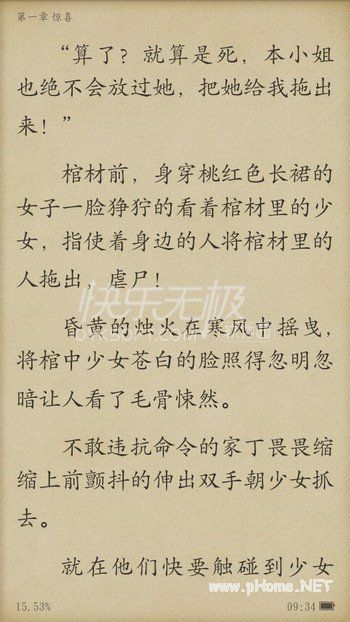 第一章 惊喜
“算了？就算是死，本小姐
也绝不会放过她，把她给我拖出
来！”
棺材前，身穿桃红色长裙的
女子一脸狰狞的看着棺材里的少
女，指使着身边的人将棺材里的
人拖出，虐尸！
快乐无极
昏黄的烛火在寒风中摇曳，
将棺中少女苍白的脸照得忽明忽
暗让人看了毛骨悚然。
不敢违抗命令的家丁畏畏缩
缩上前颤抖的伸出双手朝少女抓
去。
就在他们快要触碰到少女
www.pHome.NET
15.53%
09:34